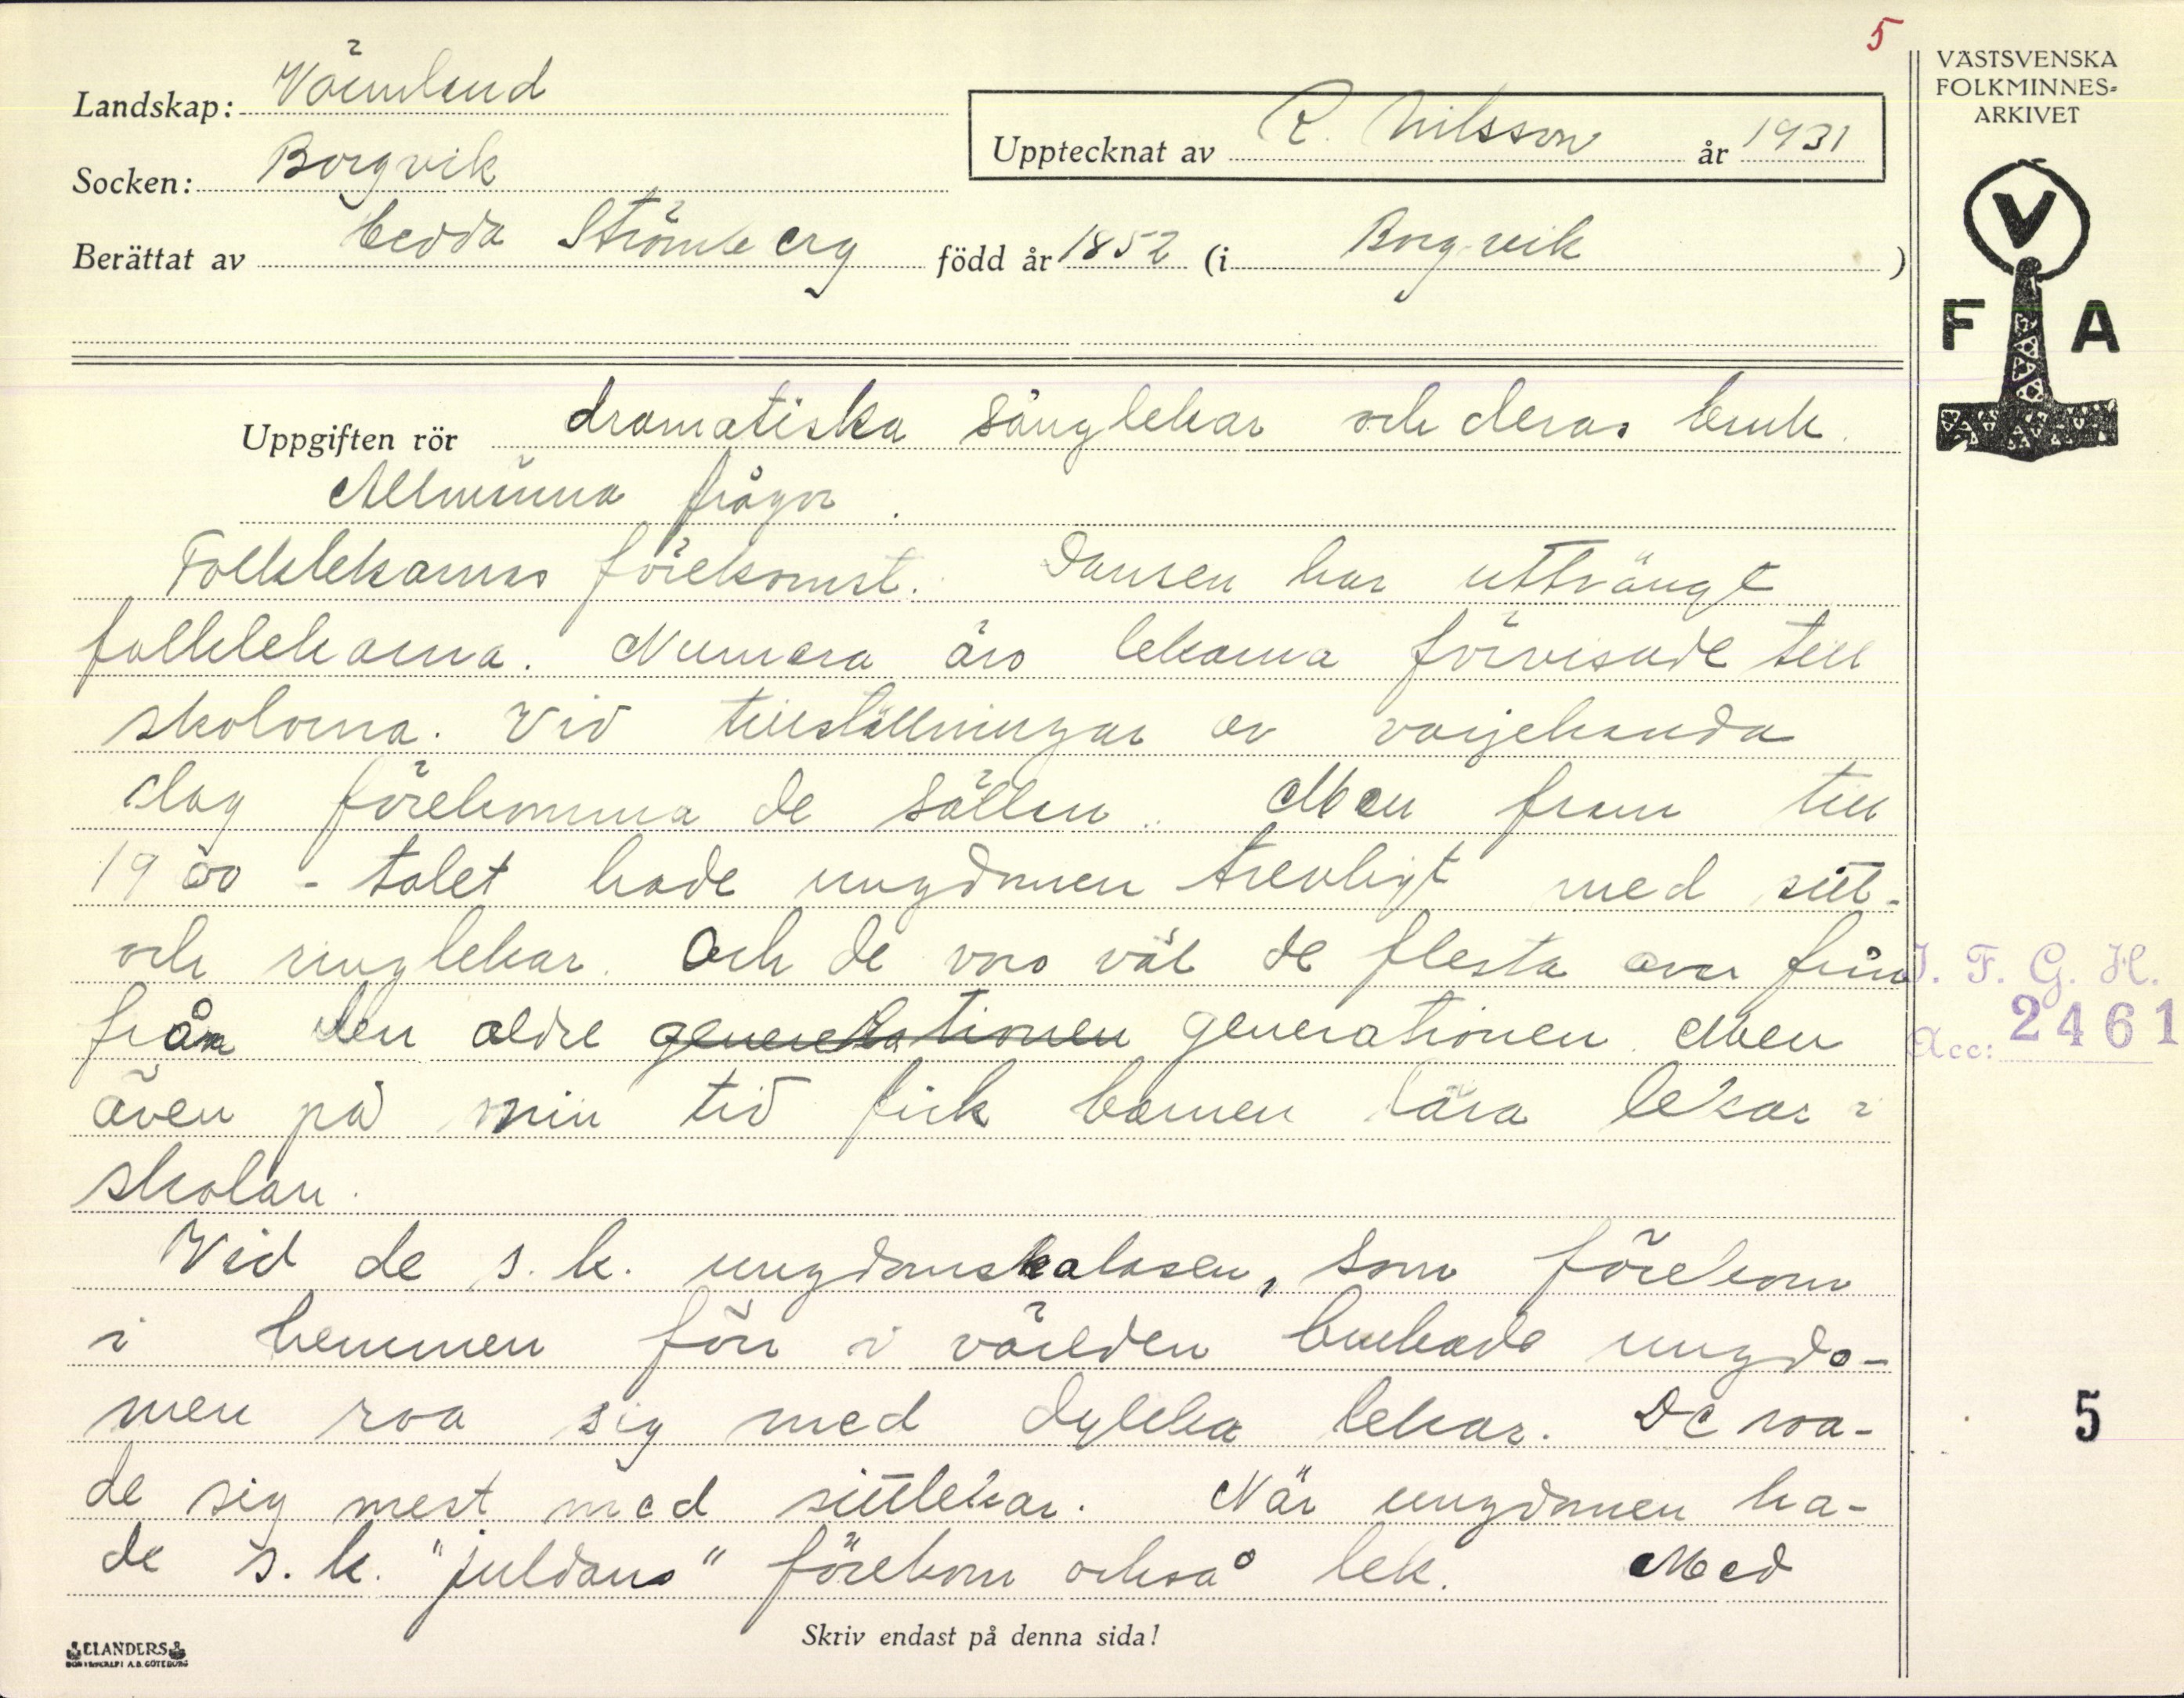 5
VÄSTSVENSKA
FOLKMINNES-
ARKIVET
Landskap: Värmland
Upptecknat av R. Nilsson år 1931
Socken: Borgvik
Berättat av Hedda Strömberg född år 1852 (i Borgvik )
V
F A
Uppgiften rör dramatiska sånglekar och deras bruk.
Allmänna frågor.
Folklekarnas förekomst. Dansen har utträngt
folklekarna. Numera äro lekarna förvisade till
skolorna. Vid tillställningar av varjehanda
slag förekomma de sällan. Men fram till
1900-talet hade ungdomen trevligt med sitt-
och ringlekar. Och de voro väl de flesta arv från
från den äldre generationen generationen. Men
även på min tid fick barnen lära lekar i
skolan.
Vid de s.k. ungdomskalasen, som förekom
i hemmen förr i världen brukade ungdo-
men roa sig med dylika lekar. De roa-
de sig mest med sittlekar. När ungdomen ha-
de s.k. "juldans" förekom också lek. Med
I. F. G. H.
Acc: 2461
5
Skriv endast på denna sida!
ELANDERS
BOKTRYCKERI A.B. GÖTEBORG